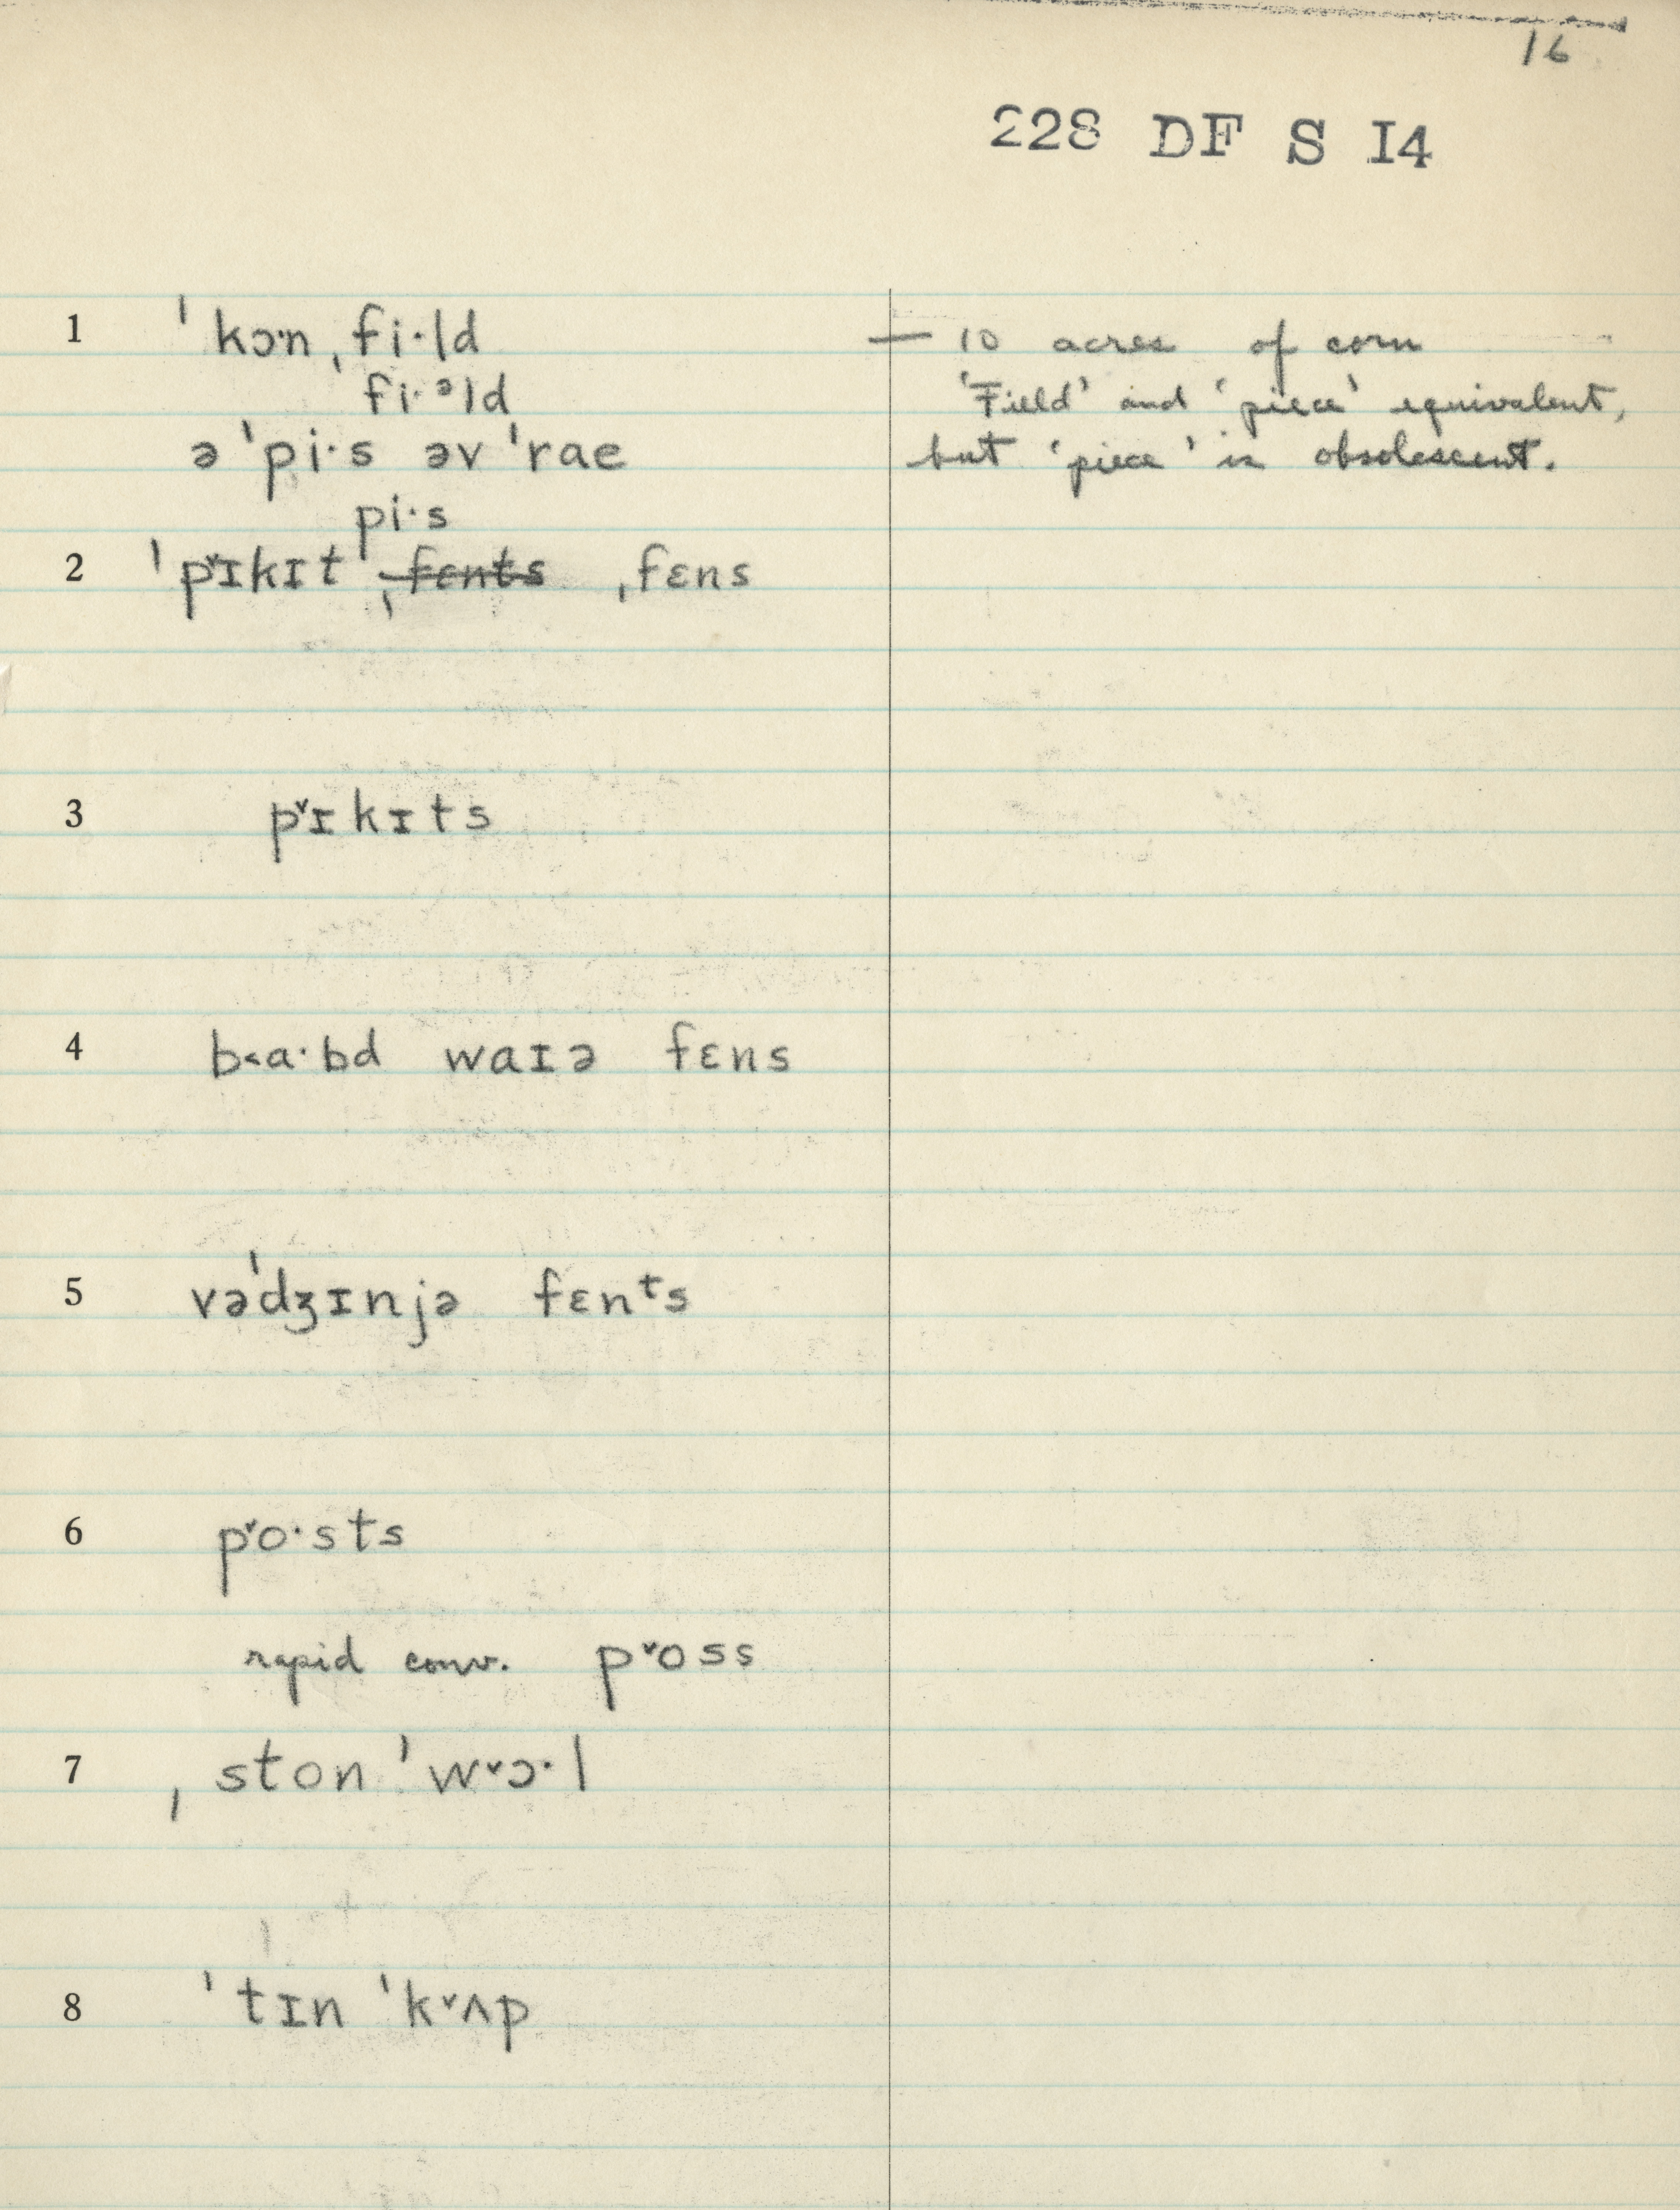 16
228 DF S I4
1 ˈkɔ·n ˌfi·ld — 10 acres of corn
fi·ᵊld 'Field' and 'piece' equivalent,
ə ˈpi·s əv ˈrae but 'piece' is obsolescent.
pi·s
2 ˈpˇɪkɪt ˌfɛnts ˌfɛns
3 pˇɪkɪts
4 b˂a·bd waɪə fɛns
5 vəˈdʒɪnjə fɛnᵗs
6 pˇo·sts
rapid conv. pˇoss
7 ˌston ˈwˇɔ·l
8 ˈtɪn ˈkˇʌp